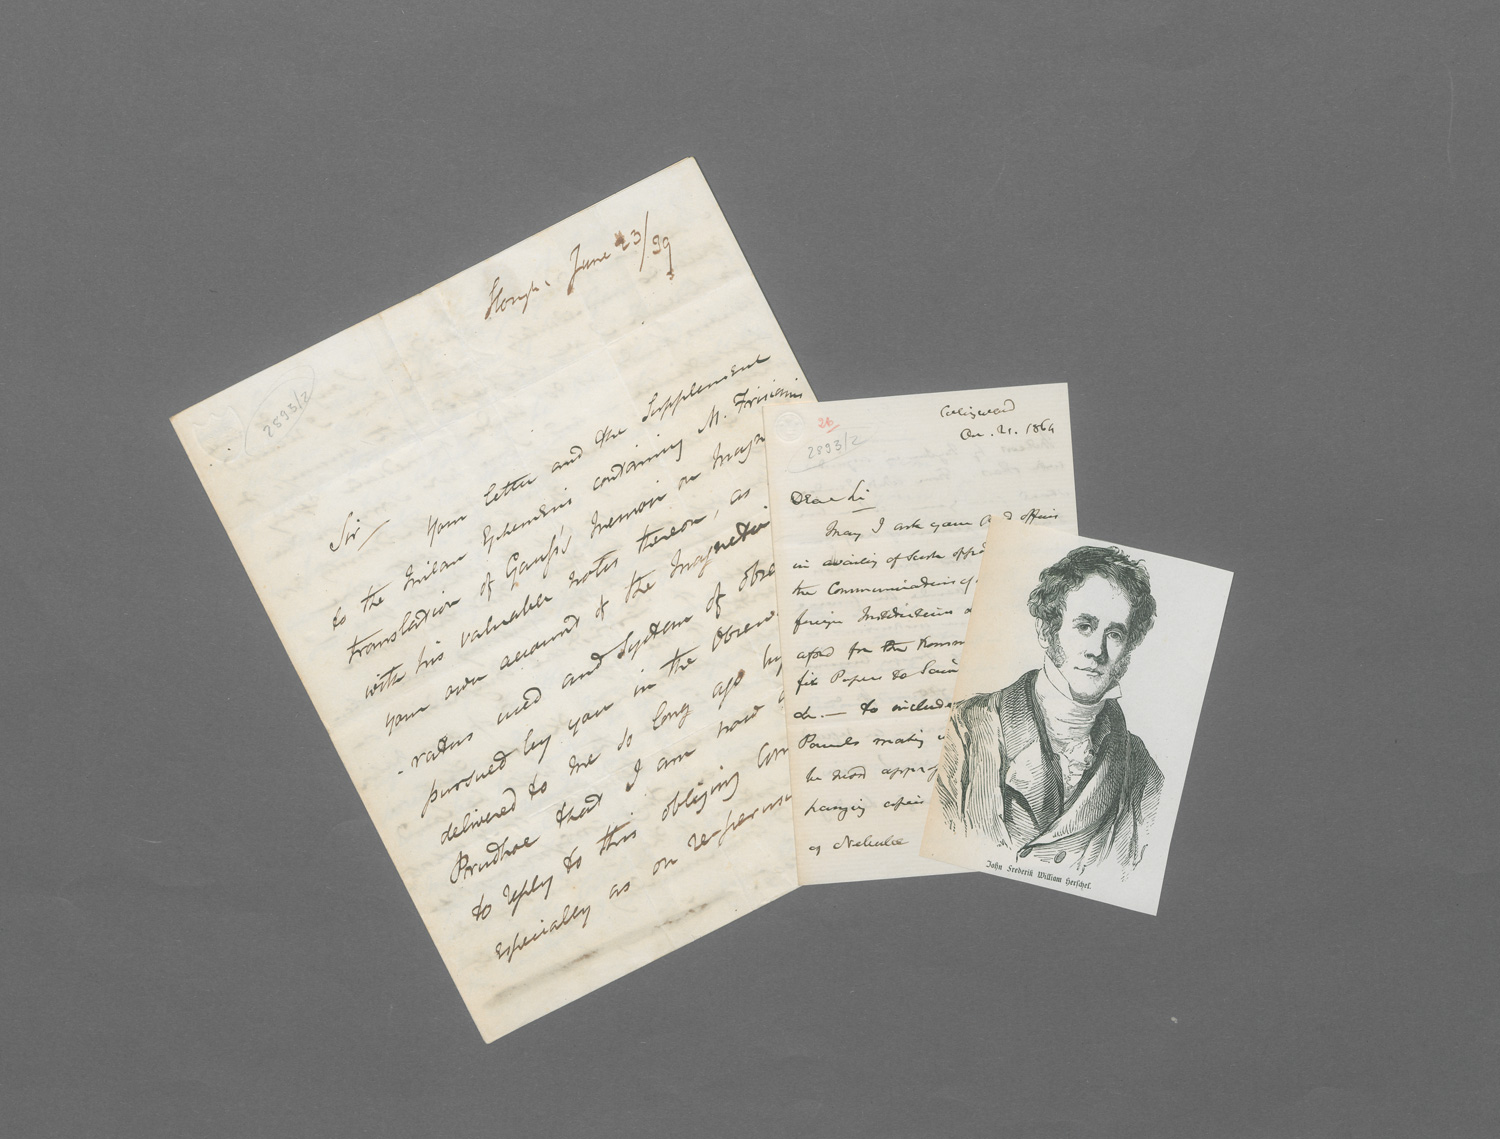 Slough. June 23/39
2893/2
Sir/ Your letter and the Supplement
to the Milan Ephemeris containing M. Frisiani's
translation of Gauss's Memoir on Magn
with his valuable notes thereon, as
your own account of the Magnetic
-ratus used and System of obse
pursued by you in the Observ
delivered to me so long ago by
Prudhoe that I am now
to reply to this obliging Com
especially as on reperus
26
2893/2
Collingwood
21. 1864
Dear Sir
May I ask your good offices
in availing of such opp
the Communications of
foreign Institutions
afford for the transm
Papers to Scien
&c. — to include
Parcels making
be most approp
hanging
of Nebulae
John Frederik William Herschel.